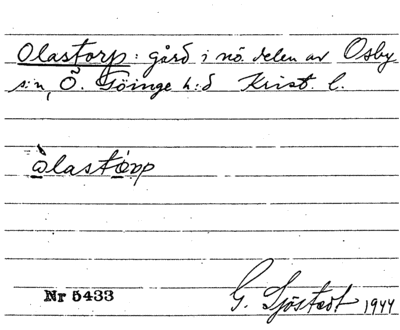 Olastorp: gård i nö. delen av Osby
s:n, Ö. Göinge h:d Krist. l.
òlastórp
Nr 5433
G. Sjöstedt 1944